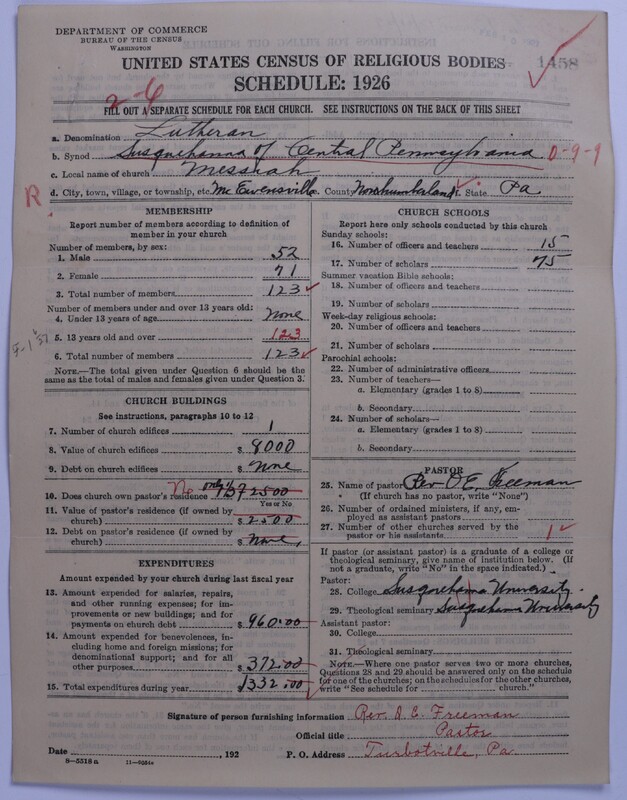 DEPARTMENT OF COMMERCE
BUREAU OF THE CENSUS
WASHINGTON
1458
UNITED STATES CENSUS OF RELIGIOUS BODIES
SCHEDULE: 1926
2-6
FILL OUT A SEPARATE SCHEDULE FOR EACH CHURCH. SEE INSTRUCTIONS ON THE BACK OF THIS SHEET
a. Denomination Lutheran
b. Synod Susquehanna of Central Pennsylvania 0-9-9
c. Local name of church Messiah
R.
d. City, town, village, or township, etc. McEwensville. County Northumberland. State Pa
MEMBERSHIP
Report number of members according to definition of member in your church
Number of members, by sex:
1. Male 52
2. Female 71
3. Total number of members 123
Number of members under and over 13 years old:
4. Under 13 years of age None
5. 13 years old and over 123
6. Total number of members 123
NOTE.—The total given under Question 6 should be the same as the total of males and females given under Question 3.
CHURCH BUILDINGS
See instructions, paragraphs 10 to 12
7. Number of church edifices 1
8. Value of church edifices $ 8000
9. Debt on church edifices $ None
10. Does church own pastor's residence No
Yes or No
11. Value of pastor's residence (if owned by church) $ 2500
12. Debt on pastor's residence (if owned by church) $ None
EXPENDITURES
Amount expended by your church during last fiscal year
13. Amount expended for salaries, repairs, and other running expenses; for improvements or new buildings; and for payments on church debt $ 960.00
14. Amount expended for benevolences, including home and foreign missions; for denominational support; and for all other purposes $ 372.00
15. Total expenditures during year $ 1332.00
CHURCH SCHOOLS
Report here only schools conducted by this church
Sunday schools:
16. Number of officers and teachers 15
17. Number of scholars 75
Summer vacation Bible schools:
18. Number of officers and teachers
19. Number of scholars
Week-day religious schools:
20. Number of officers and teachers
21. Number of scholars
Parochial schools:
22. Number of administrative officers
23. Number of teachers—
a. Elementary (grades 1 to 8)
b. Secondary
24. Number of scholars—
a. Elementary (grades 1 to 8)
b. Secondary
PASTOR
25. Name of pastor Rev O E. Freeman
(If church has no pastor, write "None")
26. Number of ordained ministers, if any, employed as assistant pastors
27. Number of other churches served by the pastor or his assistants 1
If pastor (or assistant pastor) is a graduate of a college or theological seminary, give name of institution below. (If not a graduate, write "No" in the space indicated.)
Pastor:
28. College Susquehanna University
29. Theological seminary Susquehanna University
Assistant pastor:
30. College
31. Theological seminary
NOTE.—Where one pastor serves two or more churches, Questions 28 and 29 should be answered only on the schedule for one of the churches; on the schedules for the other churches, write "See schedule for church."
Signature of person furnishing information Rev. O. E. Freeman
Official title Pastor
Date , 192
P. O. Address Turbotville, Pa.
8—5318 a